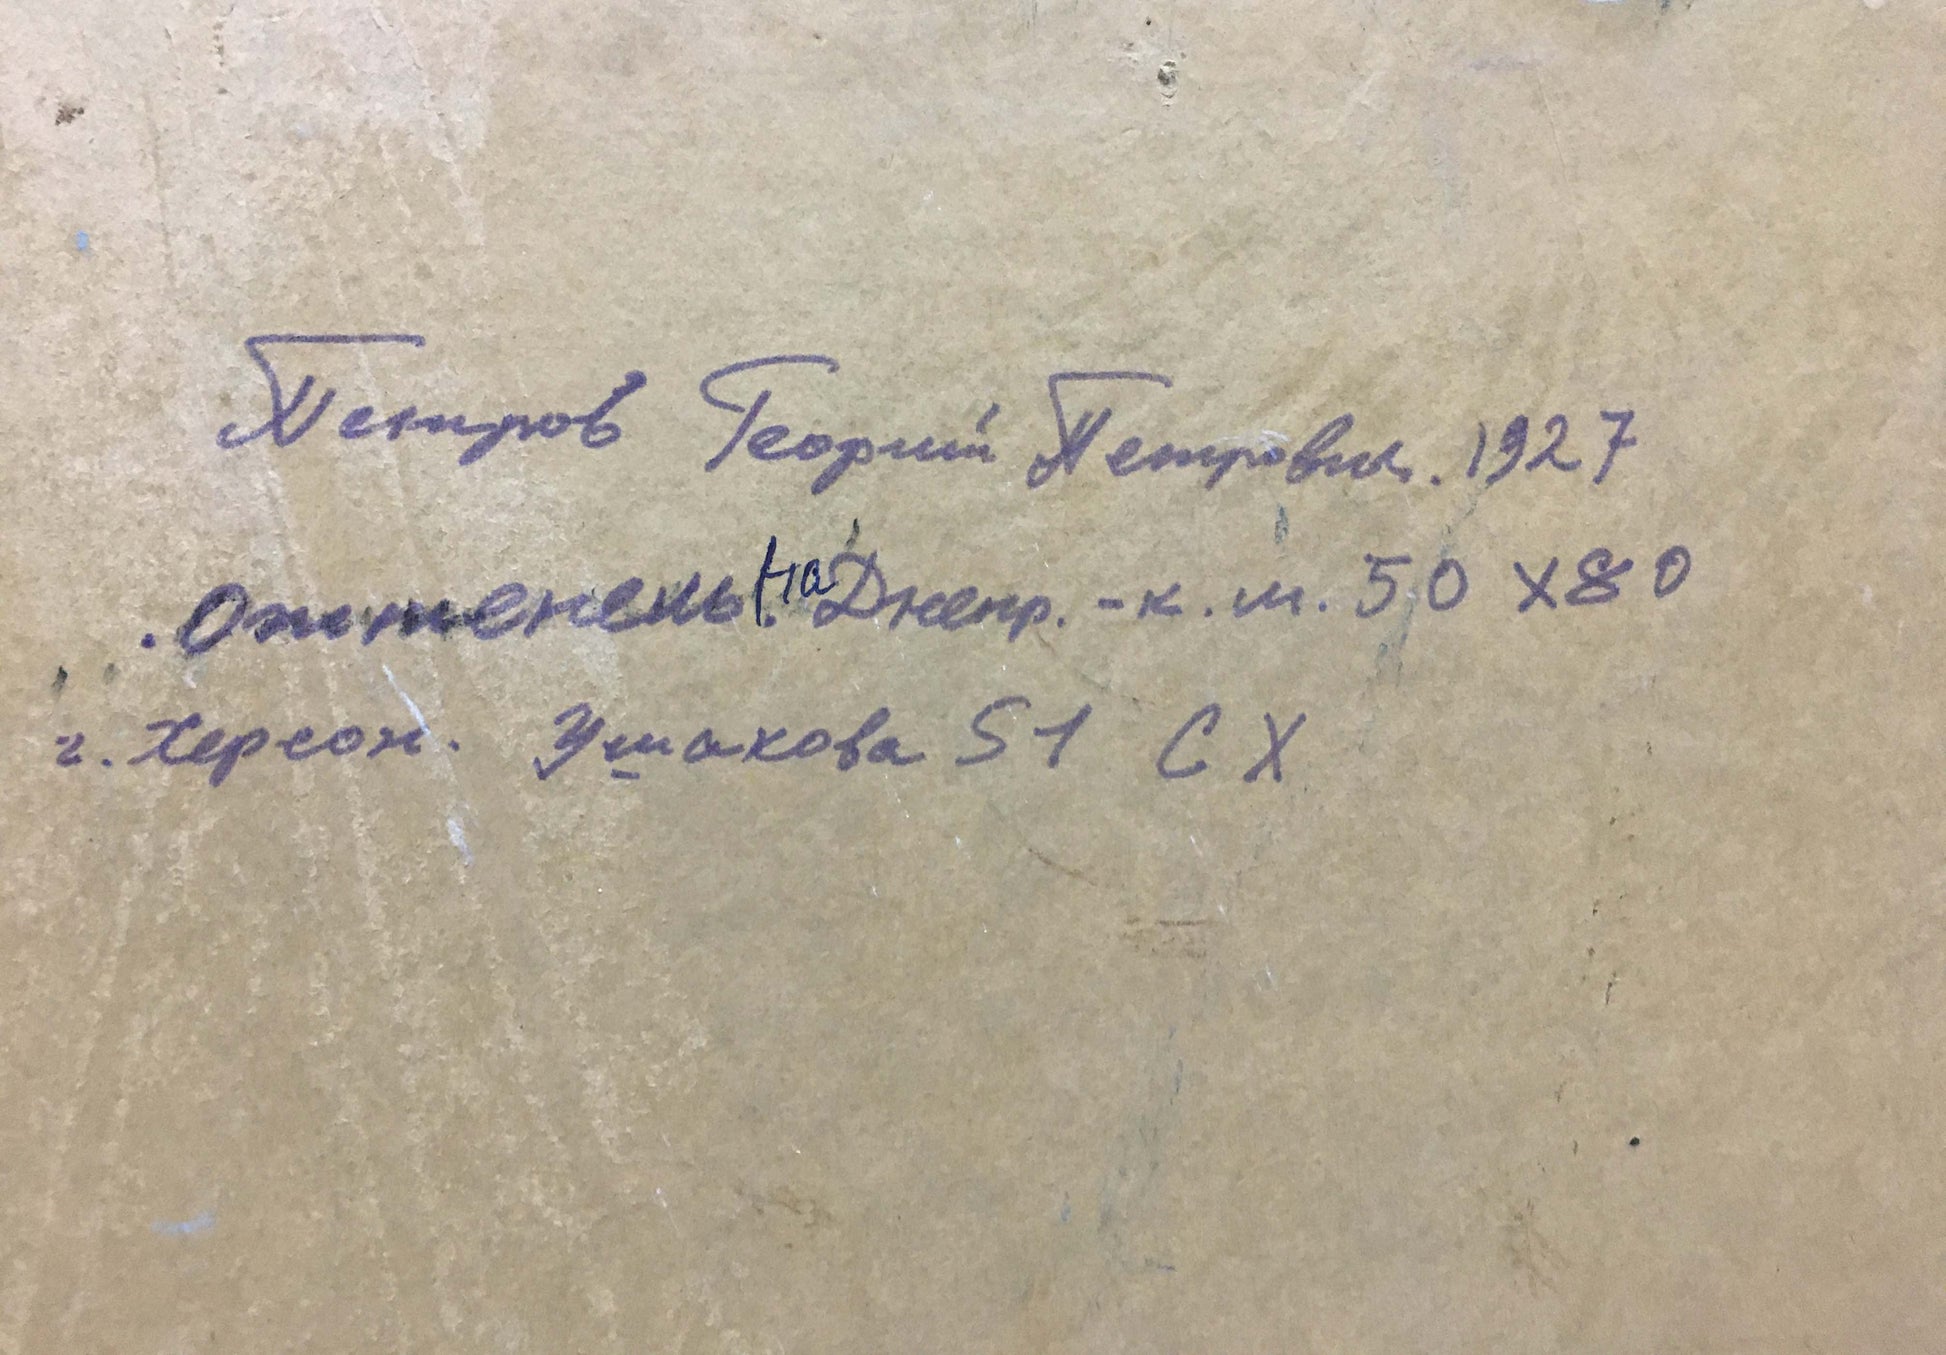 Петров Георгий Петрович. 1927
Оттепель. на Днепр. - к. м. 50 х 80
г. Херсон. Ушакова 51 СХ